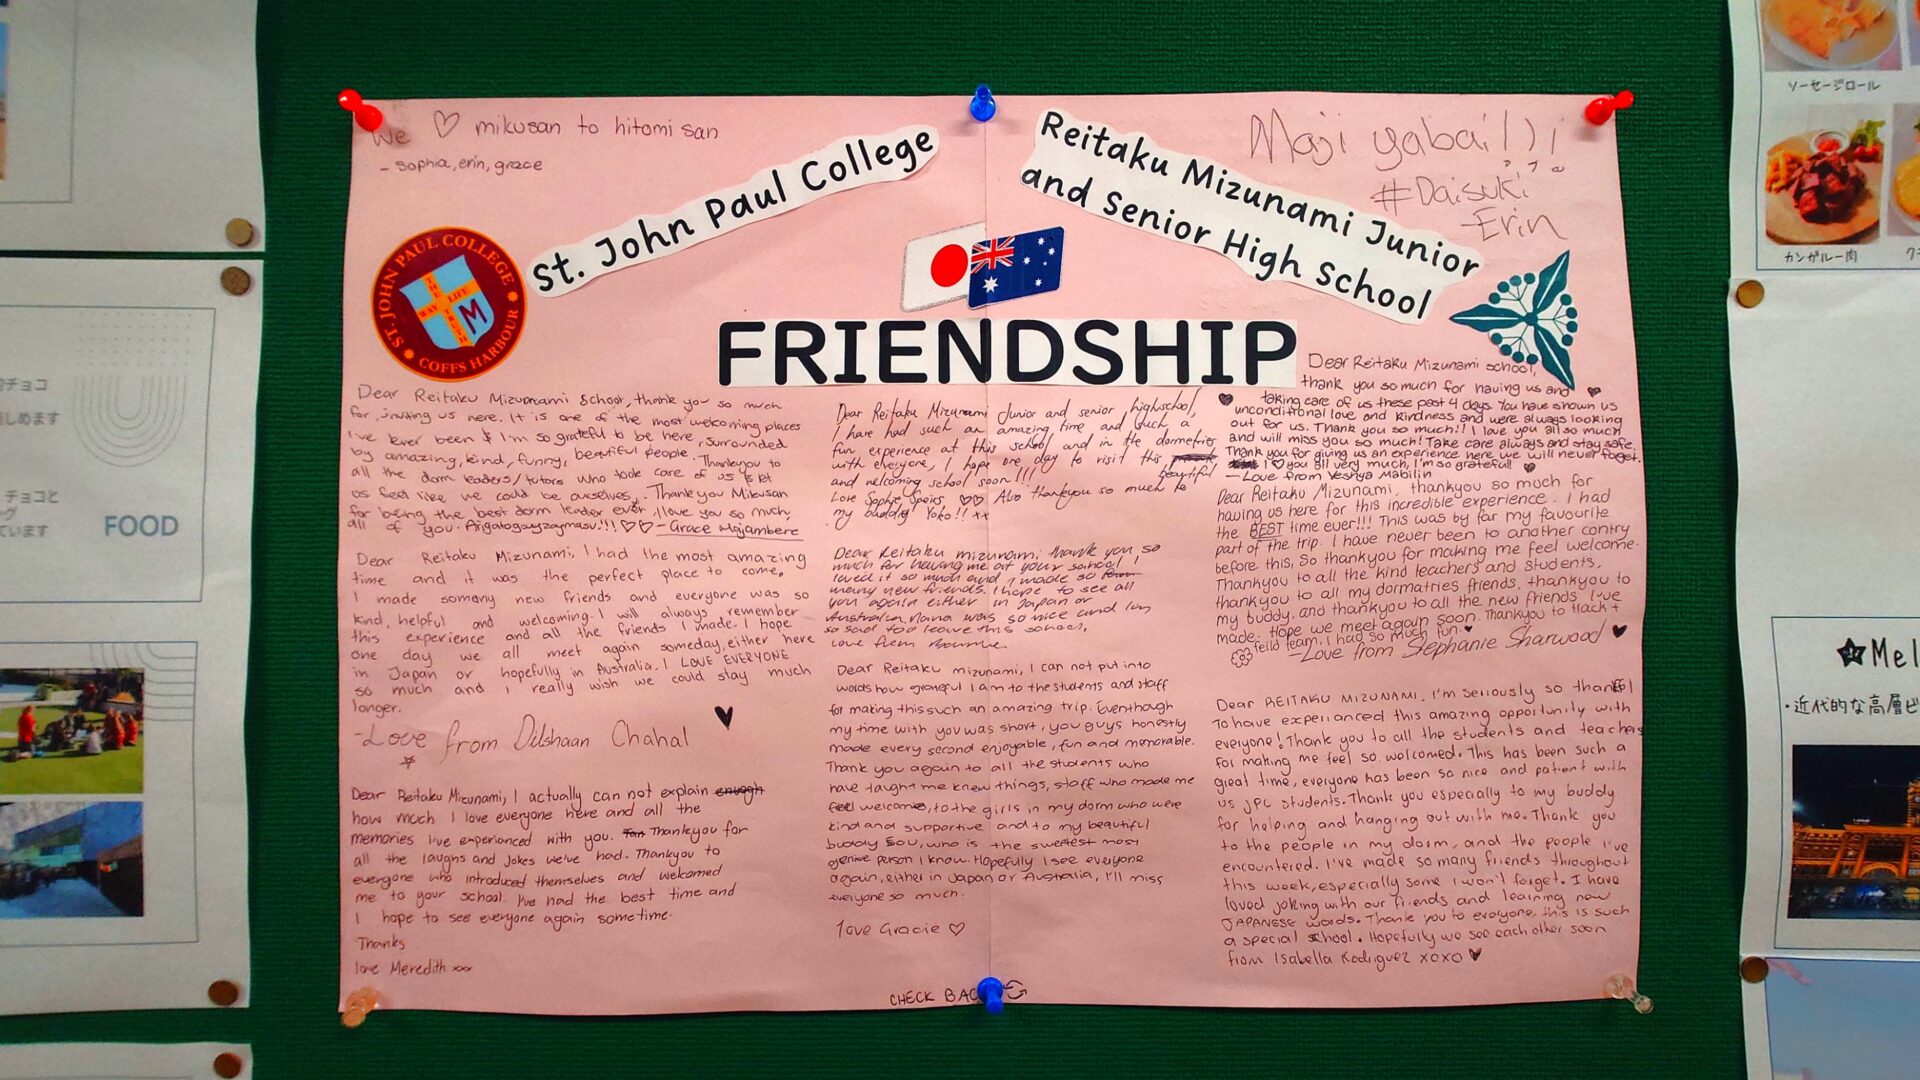 We ♡ mikusan to hitomi san
- sophia, erin, grace
St. John Paul College
Reitaku Mizunami Junior
and Senior High School
Maji yabai!)i
#Daisuki
-Erin
ST. JOHN PAUL COLLEGE
COFFS HARBOUR
THE WAY LIFE TRUTH
M
FRIENDSHIP
Dear Reitaku Mizumami School, thank you so much
for inviting us here. It is one of the most welcoming places
I've ever been & I'm so grateful to be here, surrounded
by amazing, kind, funny, beautiful people. Thankyou to
all the dorm leaders/tutors who took care of us & let
us feel like we could be ourselves. Thankyou Mikusan
for being the best dorm leader ever, I love you so much,
all of you. Arigatogoyzaymasu!!! ♡♡ - Grace
Dear Reitaku Mizunami, I had the most amazing
time and it was the perfect place to come.
I made somany new friends and everyone was so
kind, helpful and welcoming. I will always remember
this experience and all the friends I made. I hope
one day we all meet again someday, either here
in Japan or hopefully in Australia. I LOVE EVERYONE
so much and I really wish we could stay much
longer.
-Love from Dilshaan Chahal
Dear Reitaku Mizunami, I actually can not explain enough
how much I love everyone here and all the
memories I've experienced with you. Thankyou for
all the laughs and jokes we've had. Thankyou to
everyone who introduced themselves and welcomed
me to your school. I've had the best time and
I hope to see everyone again sometime.
Thanks
love Meredith xxx
Dear Reitaku Mizunami Junior and senior highschool,
I have had such an amazing time and such a
fun experience at this school and in the dormetries
with everyone, I hope one day to visit this beautiful
and welcoming school soon!!!
Love Sophie Speirs ♡♡ Also thankyou so much to
my buddy! Yoko!! xx
Dear Reitaku mizunami thank you so
much for having me at your school I
loved it so much and I made so
many new friends. I hope to see all
you again either in Japan or
Australia. Nana was so nice and I'm
so sad too leave this school,
Love from
Dear Reitaku mizunami, I can not put into
words how grateful I am to the students and staff
for making this such an amazing trip. Eventhough
my time with you was short, you guys honestly
made every second enjoyable, fun and memorable.
Thank you again to all the students who
have taught me knew things, staff who made me
feel welcome, to the girls in my dorm who were
kind and supportive and to my beautiful
buddy Sou, who is the sweetest most
genuine person I know. Hopefully I see everyone
again, either in Japan or Australia, I'll miss
everyone so much.
love Gracie ♡
CHECK BAC
Dear Reitaku Mizunami school,
thank you so much for having us and
taking care of us these past 4 days. You have shown us
unconditional love and kindness and were always looking
out for us. Thank you so much!! I love you all so much
and will miss you so much! Take care always and stay safe.
Thank you for giving us an experience here we will never forget.
I ♡ you all very much, I'm so grateful!
- Love from Yeshya Mabilin
Dear Reitaku Mizunami, thankyou so much for
having us here for this incredible experience. I had
the BEST time ever!!! This was by far my favourite
part of the trip. I have never been to another contry
before this, So thankyou for making me feel welcome.
Thankyou to all the kind teachers and students,
thankyou to all my dormatries friends, thankyou to
my buddy, and thankyou to all the new friends I've
made. Hope we meet again soon. Thankyou to track +
feild team, I had so much fun
-Love from Stephanie Sharwood
Dear REITAKU MIZUNAMI, I'm seriously so thankful
to have experianced this amazing opportunity with
everyone! Thank you to all the students and teachers
for making me feel so welcomed. This has been such a
great time, everyone has been so nice and patient with
us JPC students. Thank you especially to my buddy
for helping and hanging out with me. Thank you
to the people in my dorm, and the people I've
encountered. I've made so many friends throughout
this week, especially some I won't forget. I have
loved joking with our friends and learning new
JAPANESE words. Thank you to everyone, this is such
a special school. Hopefully we see each other soon
from Isabella Rodriguez xoxo
チョコ
しめます
チョコと
ています
FOOD
ソーセージロール
カンガルー肉
★Mel
・近代的な高層ビ